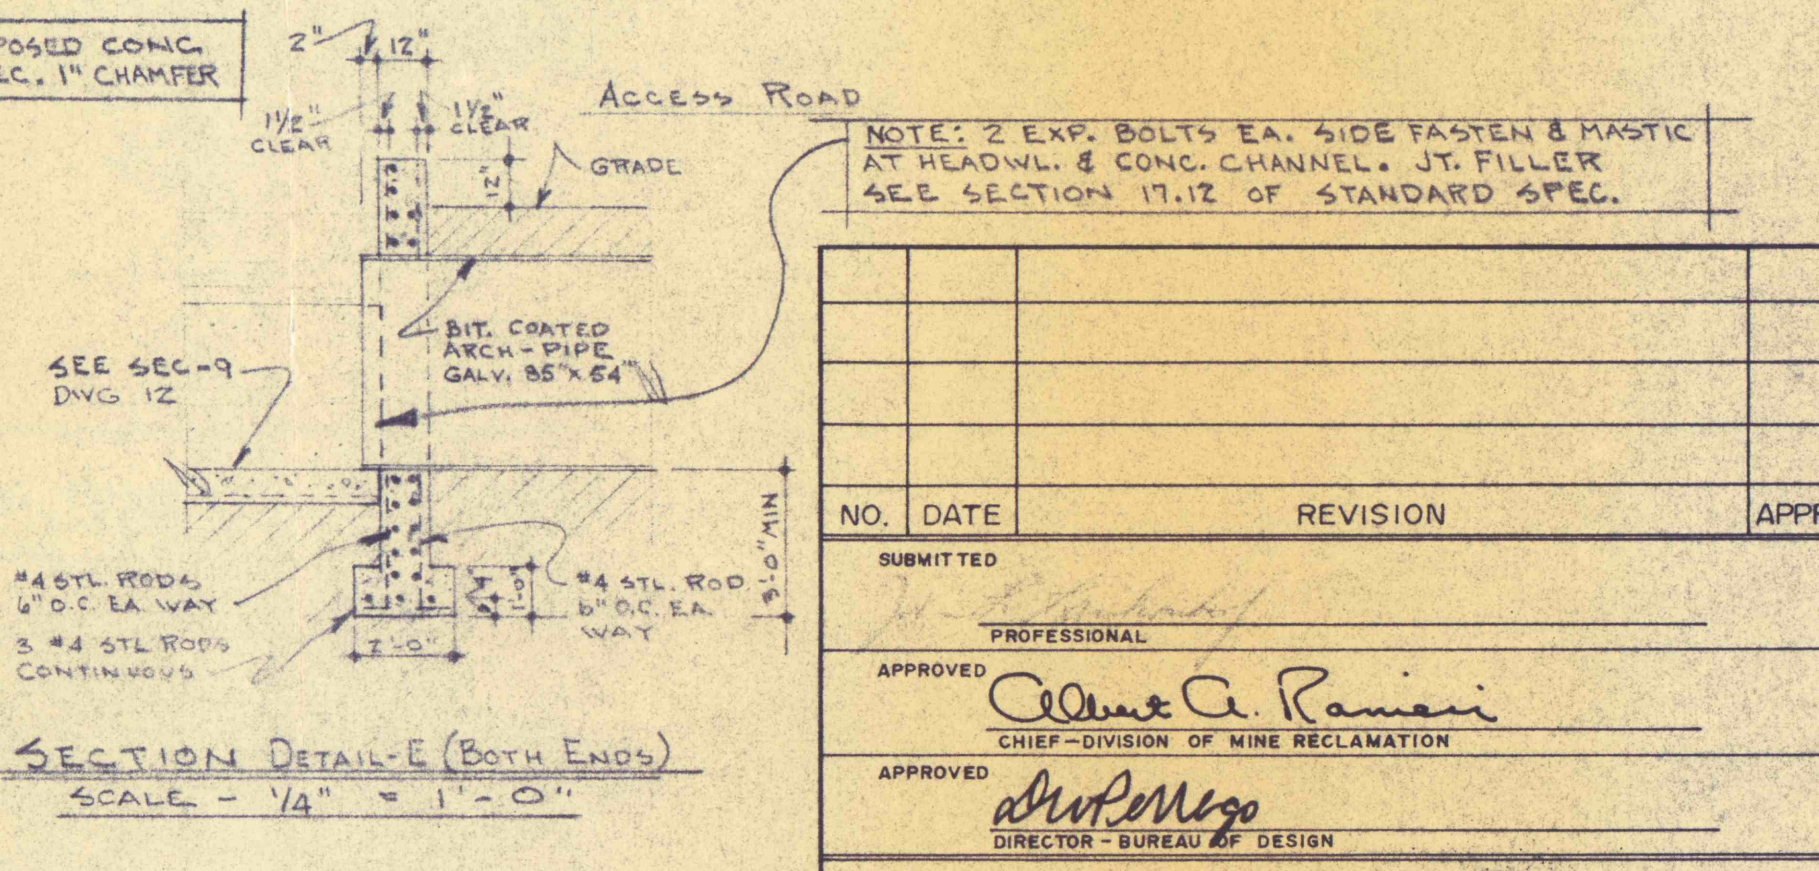 POSED CONC
EC. 1" CHAMFER
2"
12"
1 1/2"
CLEAR
1 1/2"
CLEAR
ACCESS ROAD
12"
GRADE
NOTE: 2 EXP. BOLTS EA. SIDE FASTEN & MASTIC
AT HEADWL. & CONC. CHANNEL. JT. FILLER
SEE SECTION 17.12 OF STANDARD SPEC.
BIT. COATED
ARCH-PIPE
GALV. 85" x 54"
SEE SEC-9
DWG 12
3'-0" MIN
#4 STL. RODS
6" O.C. EA. WAY
3 #4 STL RODS
CONTINUOUS
2'-0"
1'-0"
#4 STL. ROD
6" O.C. EA.
WAY
SECTION DETAIL-E (BOTH ENDS)
SCALE - 1/4" = 1'-0"
NO. DATE REVISION APPR
SUBMITTED
PROFESSIONAL
APPROVED
Albert A. Ranieri
CHIEF-DIVISION OF MINE RECLAMATION
APPROVED
DIRECTOR - BUREAU OF DESIGN